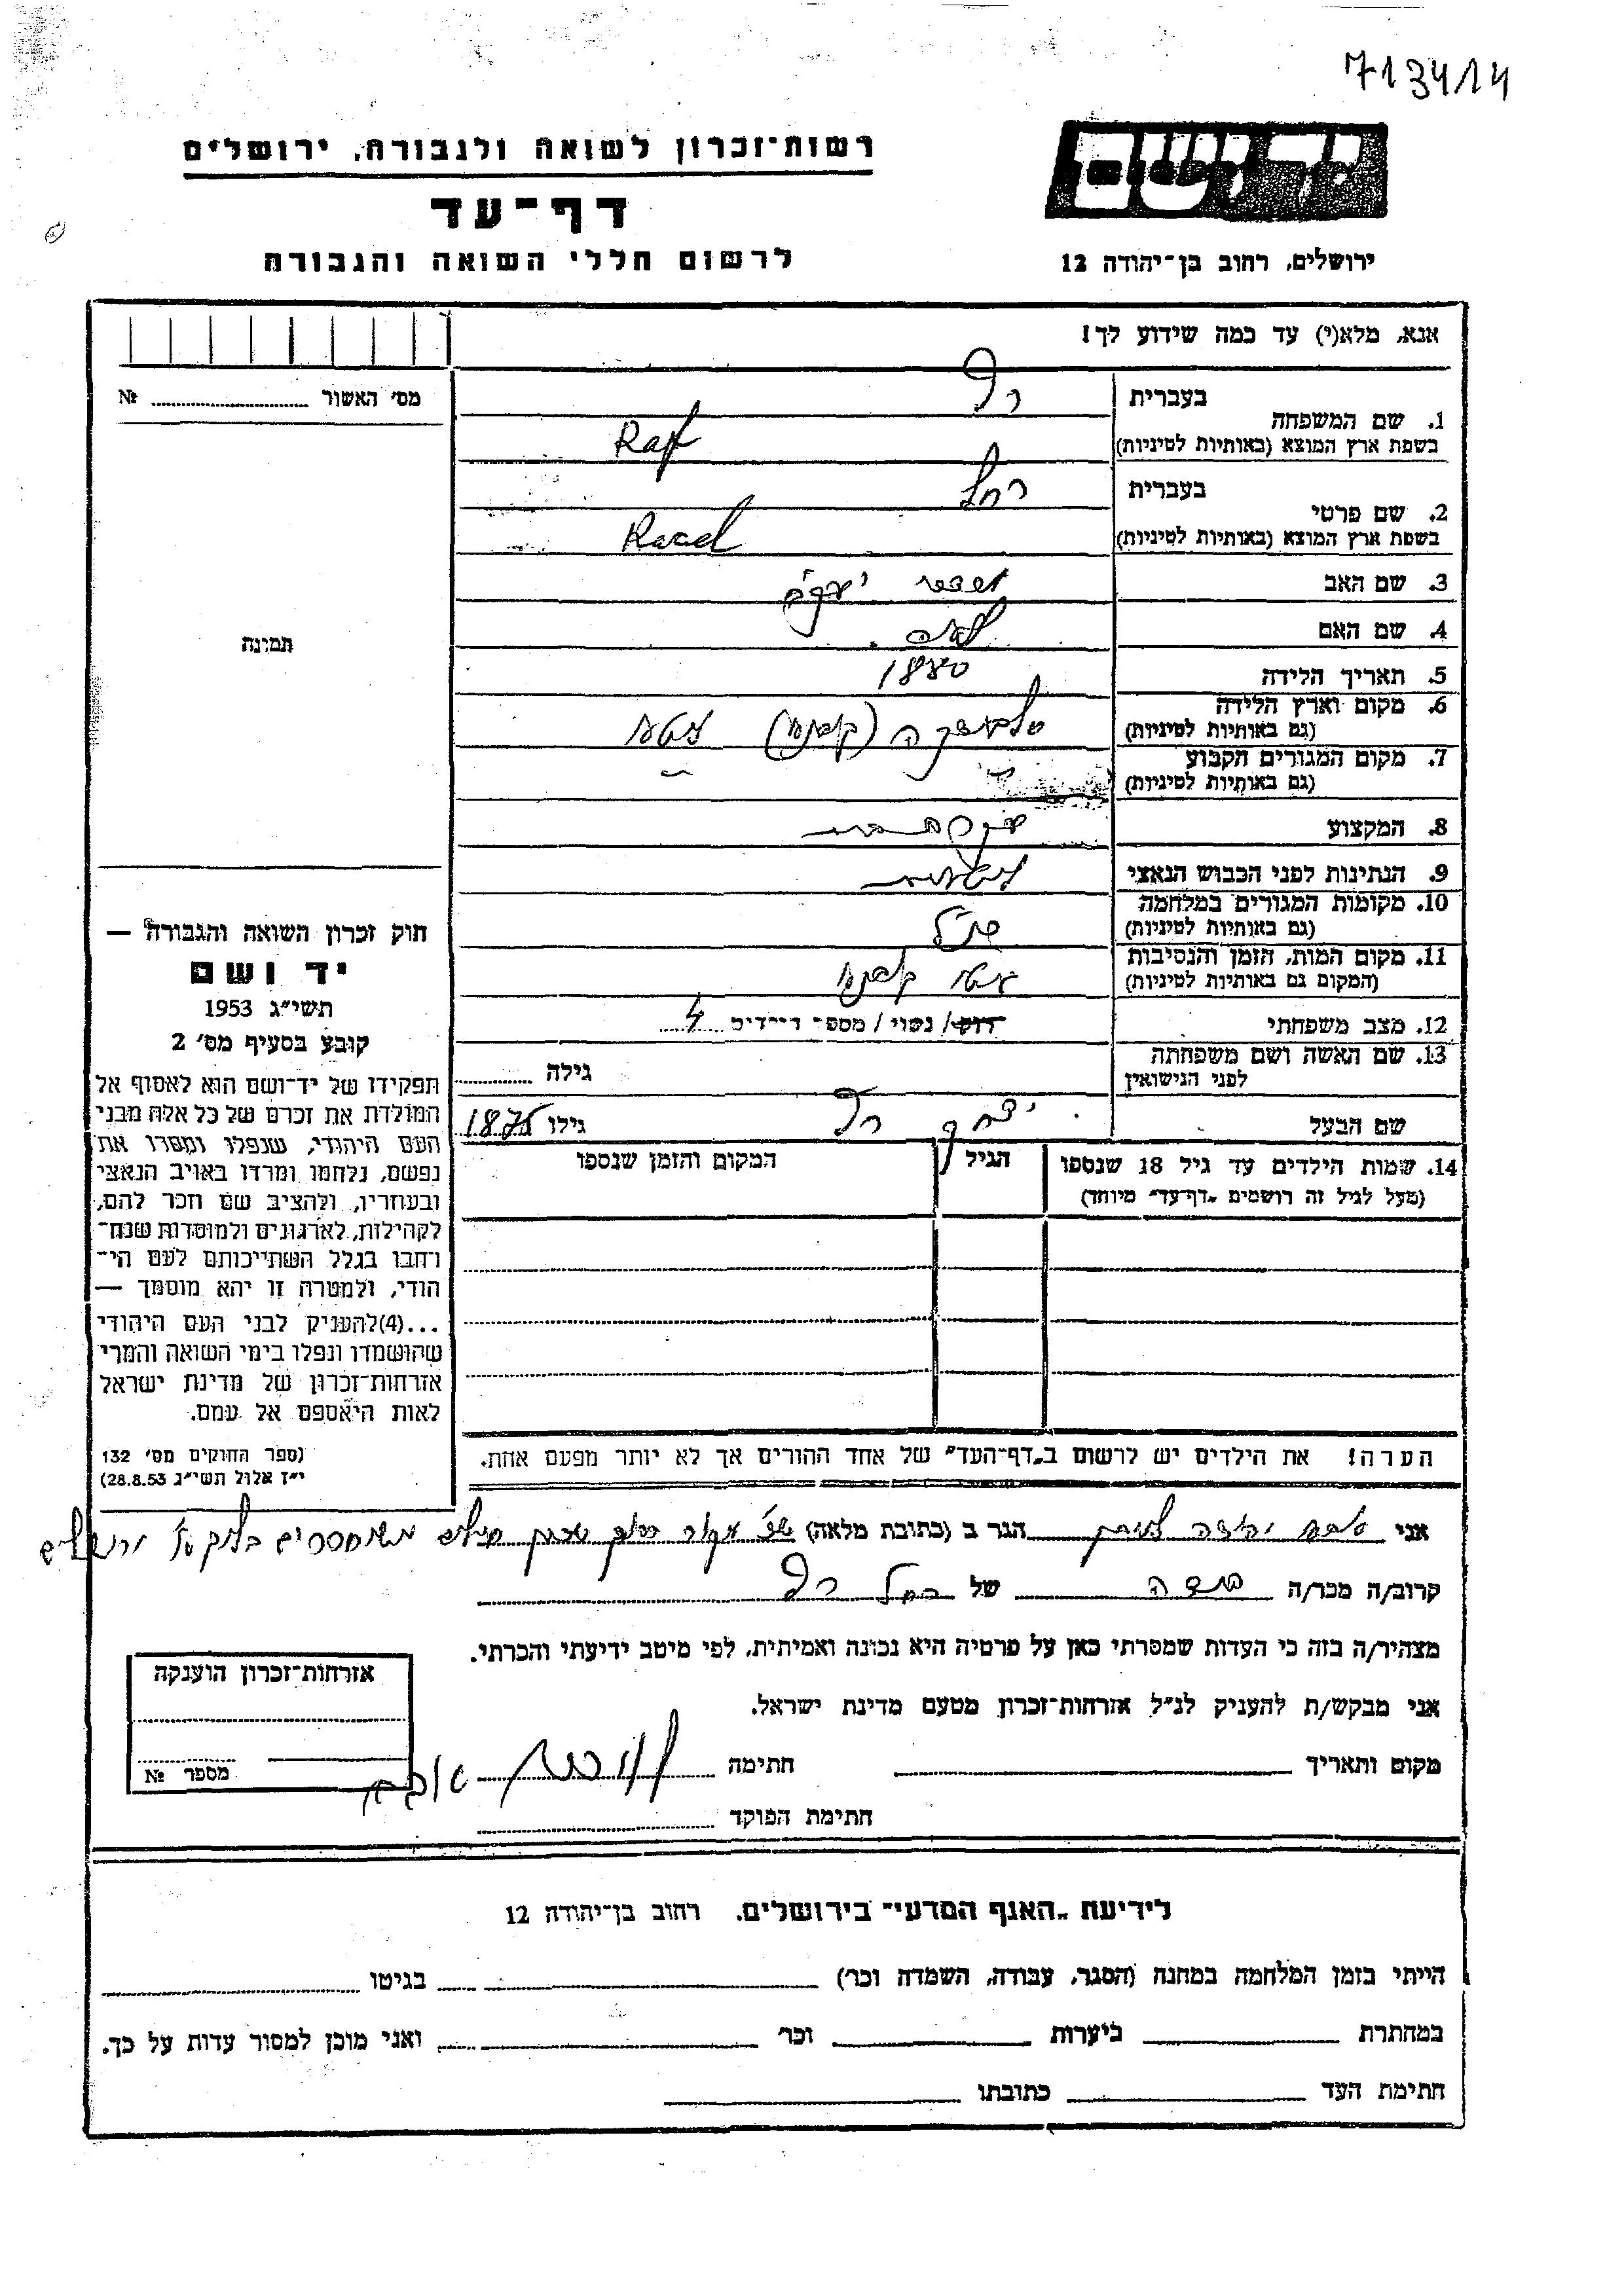 7134/14
יד ושם
רשות־זכרון לשואה ולגבורה, ירושלים
דף־עד
לרשום חללי השואה והגבורה
ירושלים, רחוב בן־יהודה 12
אנא, מלא(י) עד כמה שידוע לך!
מס׳ האשור № 
1. שם המשפחה
בעברית רף
בשפת ארץ המוצא (באותיות לטיניות) Raf
2. שם פרטי
בעברית רחל
בשפת ארץ המוצא (באותיות לטיניות) Racel
3. שם האב יעקב
4. שם האם לאה
5. תאריך הלידה 1880
6. מקום וארץ הלידה סלבודקה (קובנה) ליטא
(גם באותיות לטיניות)
7. מקום המגורים הקבוע
(גם באותיות לטיניות)
8. המקצוע עקרת בית
9. הנתינות לפני הכבוש הנאצי ליטאית
10. מקומות המגורים במלחמה כנ״ל
(גם באותיות לטיניות)
11. מקום המות, הזמן והנסיבות גיטו קובנה
(המקום גם באותיות לטיניות)
12. מצב משפחתי רווק/ נשוי/ מספר הילדים 4
13. שם האשה ושם משפחתה
לפני הנישואין
גילה
שם הבעל יצחק רף גילו 1875
14. שמות הילדים עד גיל 18 שנספו
(מעל לגיל זה רושמים "דף־עד" מיוחד)
הגיל
המקום והזמן שנספו
הערה! את הילדים יש לרשום ב"דף־העד" של אחד ההורים אך לא יותר מפעם אחת.
תמונה
חוק זכרון השואה והגבורה —
יד ושם
תשי״ג 1953
קובע בסעיף מס׳ 2
תפקידו של יד־ושם הוא לאסוף אל
המולדת את זכרם של כל אלה מבני
העם היהודי, שנפלו ומסרו את
נפשם, נלחמו ומרדו באויב הנאצי
ובעוזריו, ולהציב שם וזכר להם,
לקהילות, לארגונים ולמוסדות שנח־
רבו בגלל השתייכותם לעם הי־
הודי, ולמטרה זו יהא מוסמך —
...(4) להעניק לבני העם היהודי
שהושמדו ונפלו בימי השואה והמרי
אזרחות־זכרון של מדינת ישראל
לאות היאספם אל עמם.
(ספר החוקים מס׳ 132
י״ז אלול תשי״ג 28.8.53)
אני יהודה הגר ב (כתובת מלאה) שכון חיילים משוחררים ירושלים
קרוב/ה מכר/ה של רחל רף
מצהיר/ה בזה כי העדות שמסרתי כאן על פרטיה היא נכונה ואמיתית, לפי מיטב ידיעתי והכרתי.
אני מבקש/ת להעניק לנ״ל אזרחות־זכרון מטעם מדינת ישראל.
מקום ותאריך חתימה
חתימת הפוקד
אזרחות־זכרון הוענקה
מספר №
לידיעת "האגף המדעי" בירושלים, רחוב בן־יהודה 12
הייתי בזמן המלחמה במחנה (הסגר, עבודה, השמדה וכו׳) בגיטו
במחתרת ביערות וכו׳ ואני מוכן למסור עדות על כך.
חתימת העד כתובתו